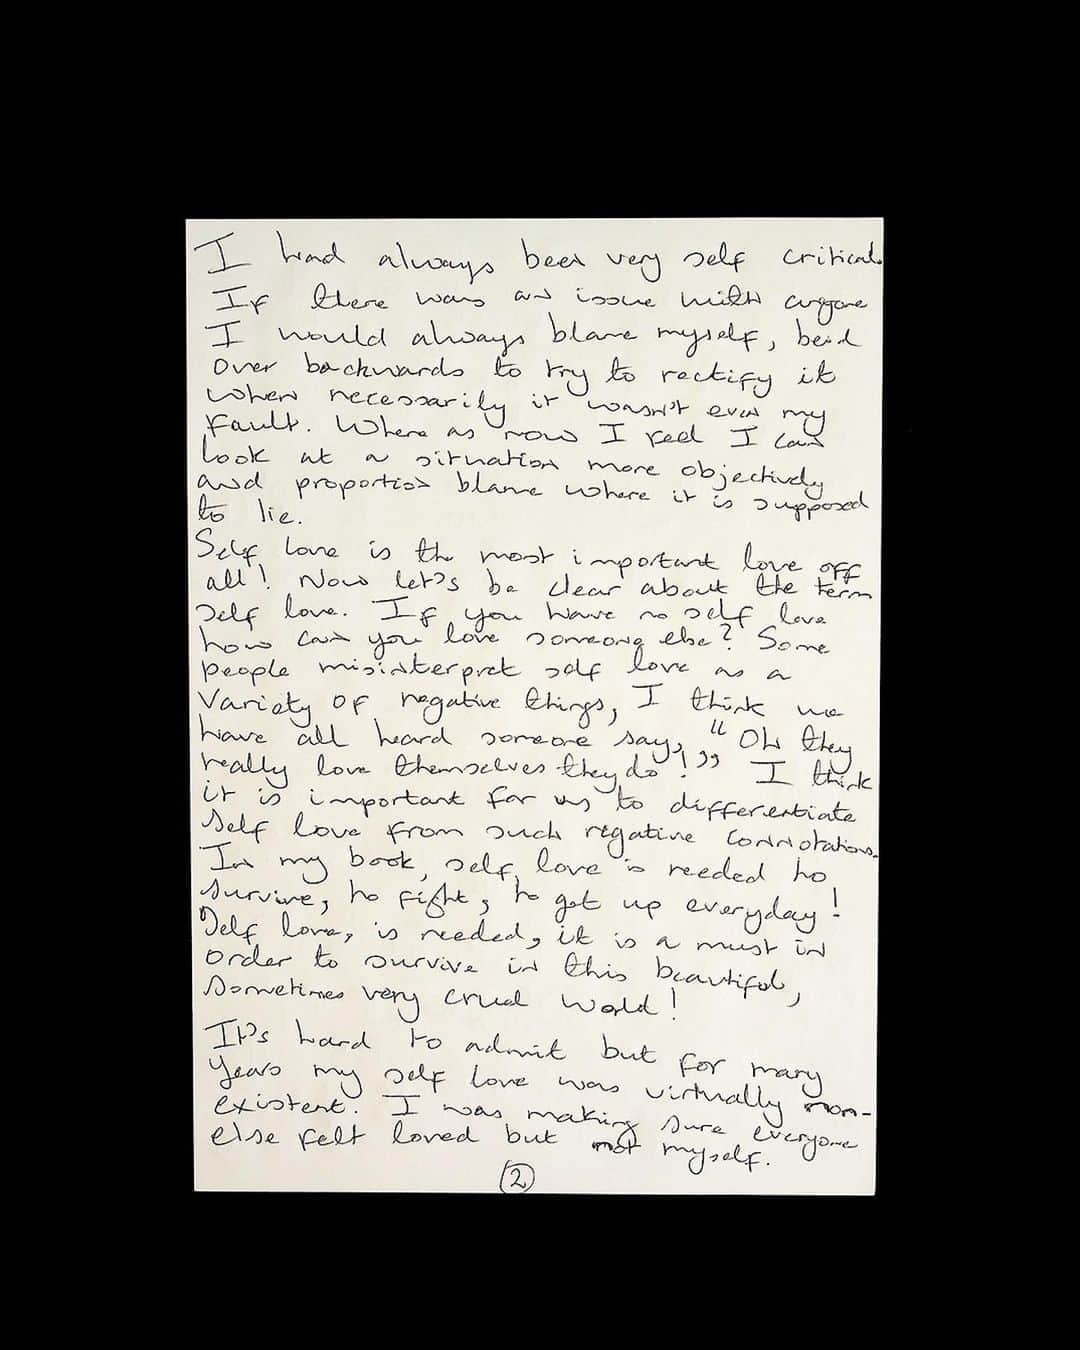 I had always been very self critical.
If there was an issue with anyone
I would always blame myself, bend
over backwards to try to rectify it
when necessarily it wasn't even my
fault. Where as now I feel I can
look at a situation more objectively
and proportion blame where it is supposed
to lie.
Self love is the most important love off
all! Now let's be clear about the term
self love. If you have no self love
how can you love someone else? Some
people misinterpret self love as a
variety of negative things, I think we
have all heard someone say, "Oh they
really love themselves they do!" I think
it is important for us to differentiate
self love from such negative connotations.
In my book, self love is needed to
survive, to fight, to get up everyday!
Self love, is needed, it is a must in
order to survive in this beautiful,
sometimes very cruel world!
It's hard to admit but for many
years my self love was virtually non-
existent. I was making sure everyone
else felt loved but not myself.
2